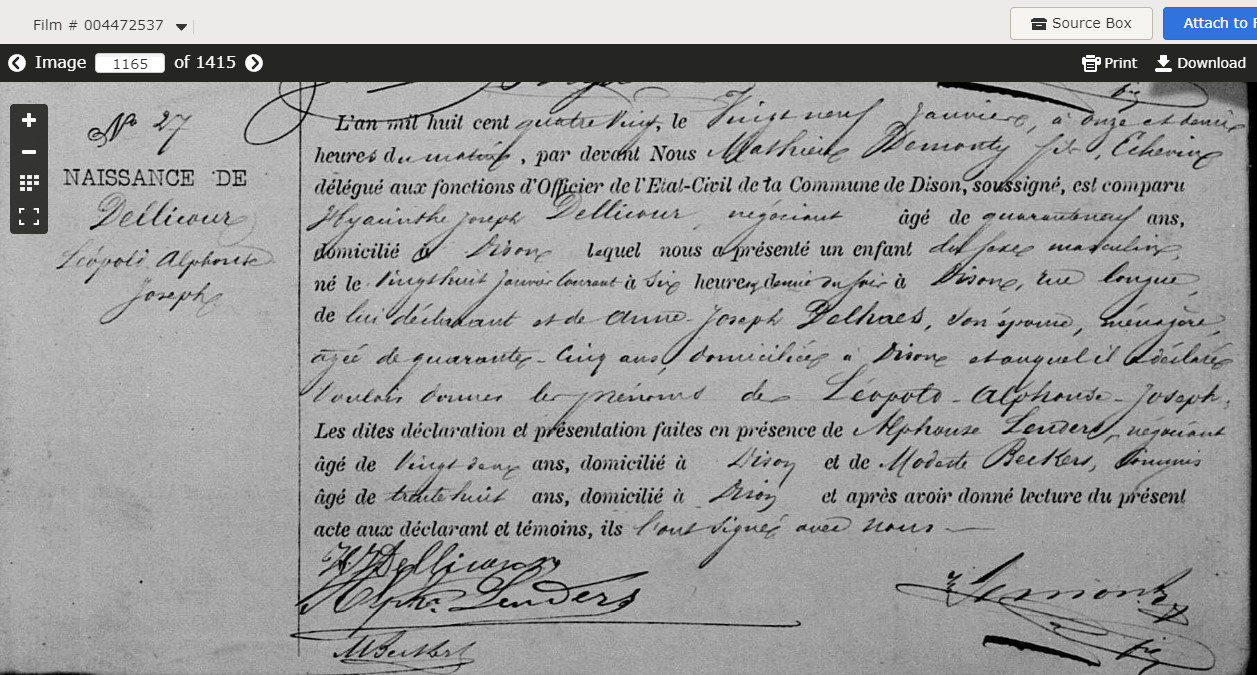 Film # 004472537
Source Box
Attach to F
Image 1165 of 1415
Print
Download
fils
Nº 27
NAISSANCE DE
Dellicour
Léopold Alphonse
Joseph
L'an mil huit cent quatre Vingt, le Vingt neuf Janvier, à onze et demie
heures du matin, par devant Nous Mathieu Demonty fils, Echevin
délégué aux fonctions d'Officier de l'Etat-Civil de la Commune de Dison, soussigné, est comparu
Hyacinthe Joseph Dellicour négociant âgé de quaranteneuf ans,
domicilié à Dison lequel nous a présenté un enfant du sexe masculin,
né le Vingthuit Janvier courant à Six heures et demie du soir à Dison, rue longue,
de lui déclarant et de Anne-Joseph Delhaes, Son épouse, ménagère,
âgée de quarante-Cinq ans, domiciliée à Dison et auquel il a déclaré
Vouloir donner les prénoms de Léopold-Alphonse-Joseph,
Les dites déclaration et présentation faites en présence de Alphonse Lenders, négociant
âgé de Vingt deux ans, domicilié à Dison et de Modeste Beckers, Commis
âgé de trente huit ans, domicilié à Dison et après avoir donné lecture du présent
acte aux déclarant et témoins, ils l'ont signé avec nous
H. J. Dellicour
Alph. Lenders
Demonty
fils
M Beckers